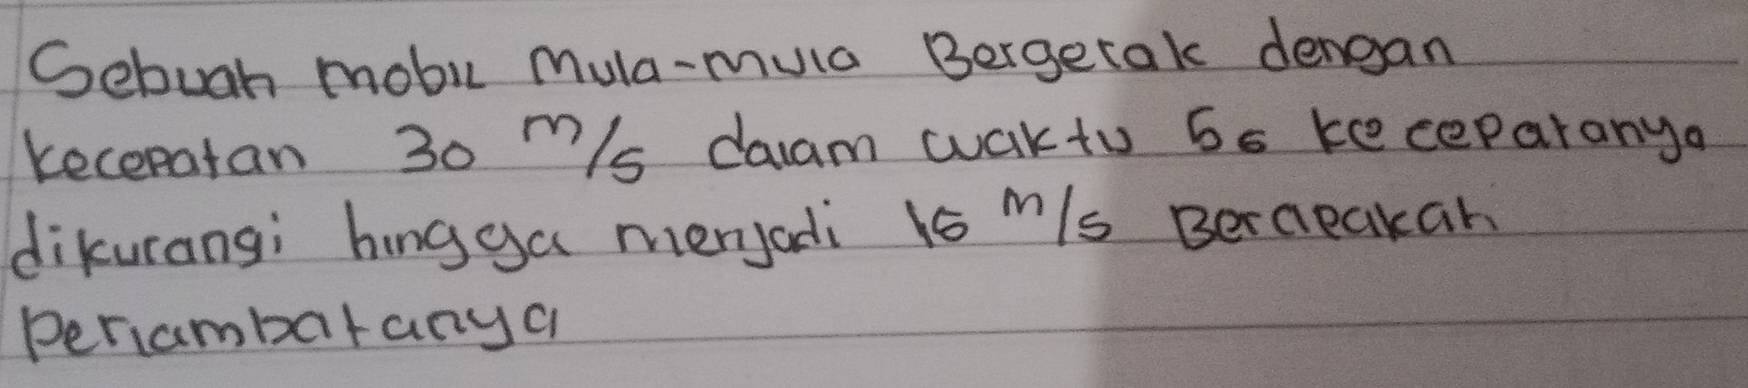 Sebuah mobil mula-mula Bergerak dengan
kecepatan 30 m/s dalam waktu 5s kecepatanya
dikurangi hingga menjadi 15 m/s Berapakah
perlambatanya